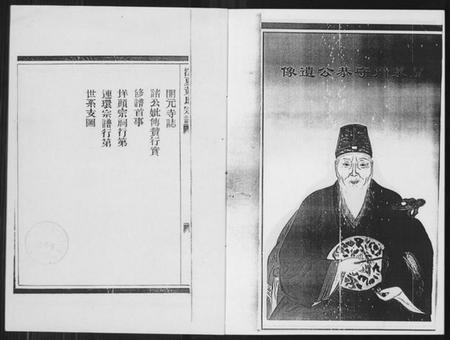 守恭公遺像
開元寺誌
諸公妣傳贊行實
修譜首事
垟頭宗祠行第
連環宗譜行第
世系支圖